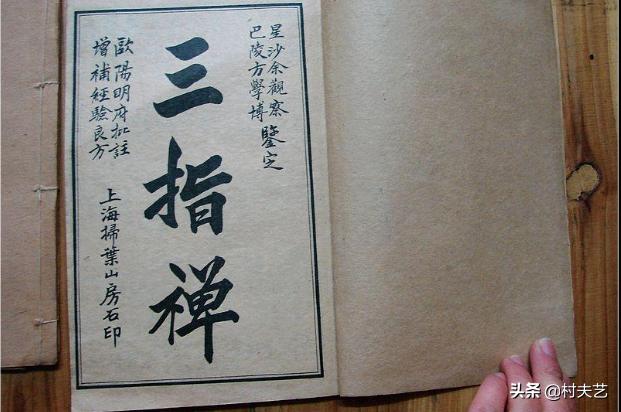 星沙余觀察
巴陵方學博
鑒定
三指禅
歐陽明府批註
增補經驗良方
上海掃葉山房石印
头条 @村夫艺